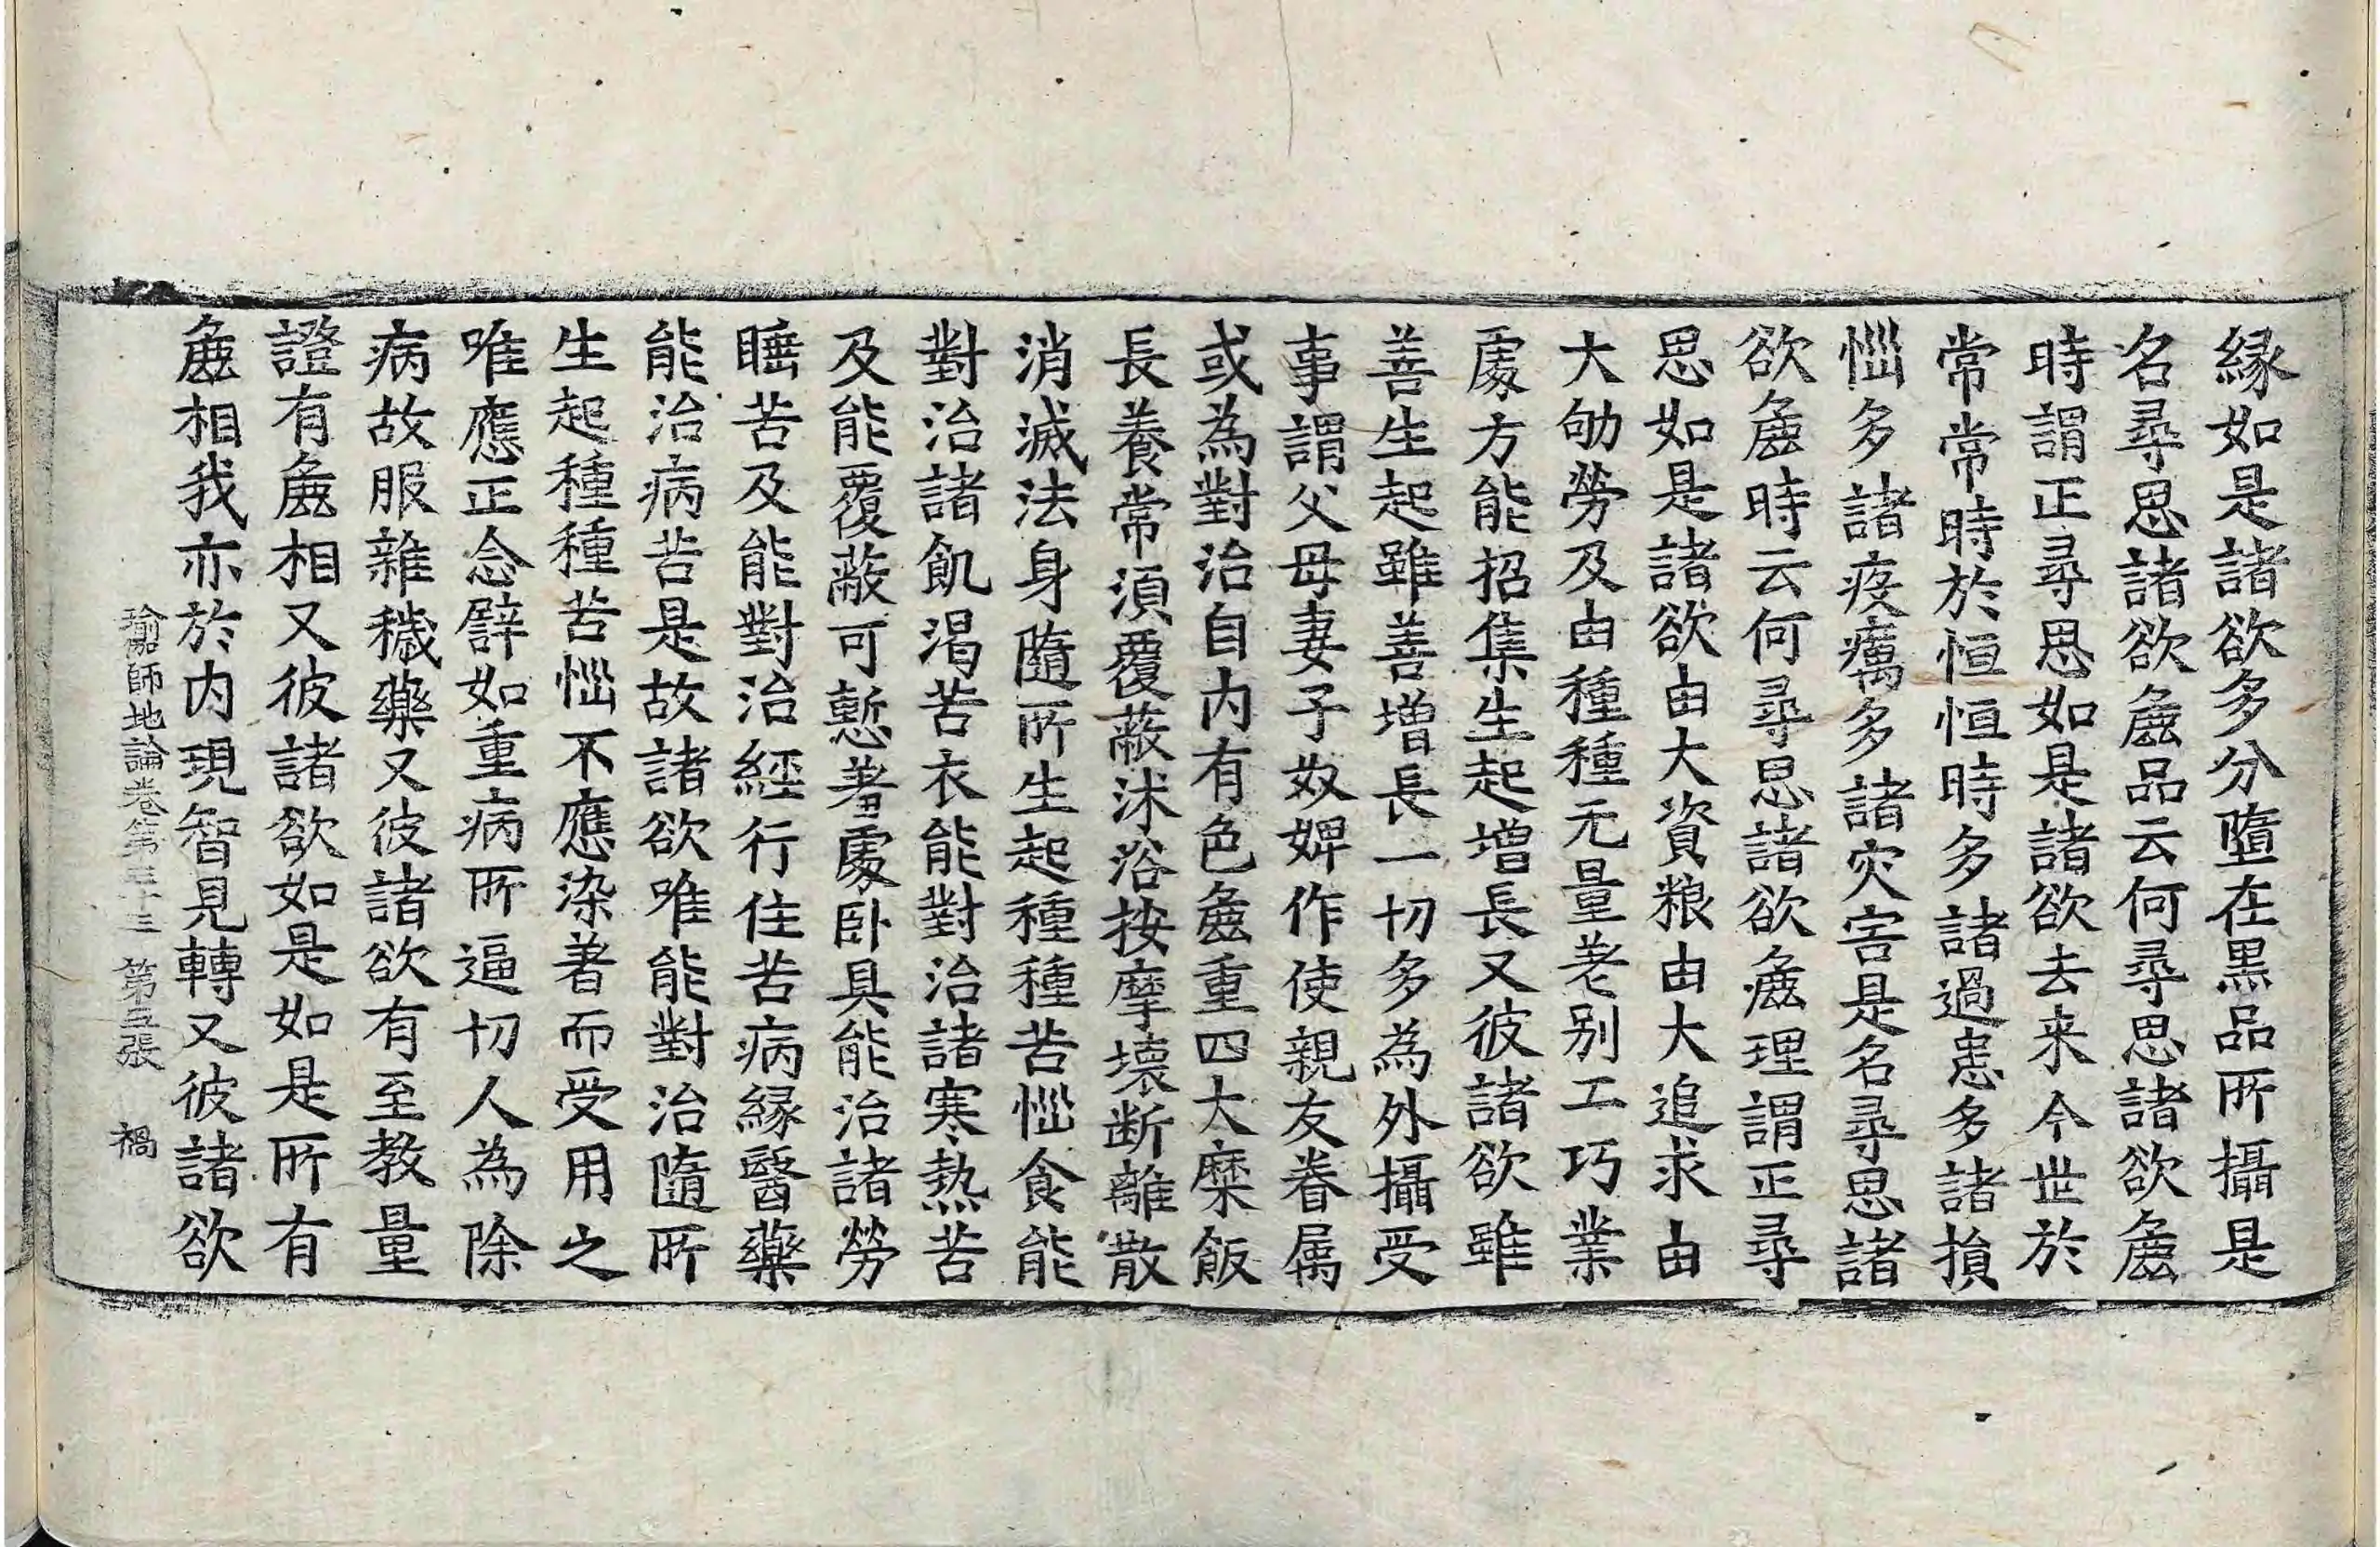 縁如是諸欲多分墮在黒品所攝是
名尋思諸欲麁品云何尋思諸欲麁
時謂正尋思如是諸欲去来今世於
常常時於恒恒時多諸過患多諸損
惱多諸疫癘多諸灾害是名尋思諸
欲麁時云何尋思諸欲麁理謂正尋
思如是諸欲由大資粮由大追求由
大劬勞及由種種无量差别工巧業
處方能招集生起增長又彼諸欲雖
善生起雖善增長一切多為外攝受
事謂父母妻子奴婢作使親友眷属
或為對治自内有色麁重四大糜飯
長養常湏覆蔽沐浴按摩壞断離散
消滅法身隨所生起種種苦惱食能
對治諸飢渴苦衣能對治諸寒熱苦
及能覆蔽可慙著處卧具能治諸勞
睡苦及能對治經行住苦病縁醫藥
能治病苦是故諸欲唯能對治隨所
生起種種苦惱不應染著而受用之
唯應正念譬如重病所逼切人為除
病故服雜穢藥又彼諸欲有至教量
證有麁相又彼諸欲如是如是所有
麁相我亦於内現智見轉又彼諸欲
瑜伽師地論卷第三十三 第五張 禍